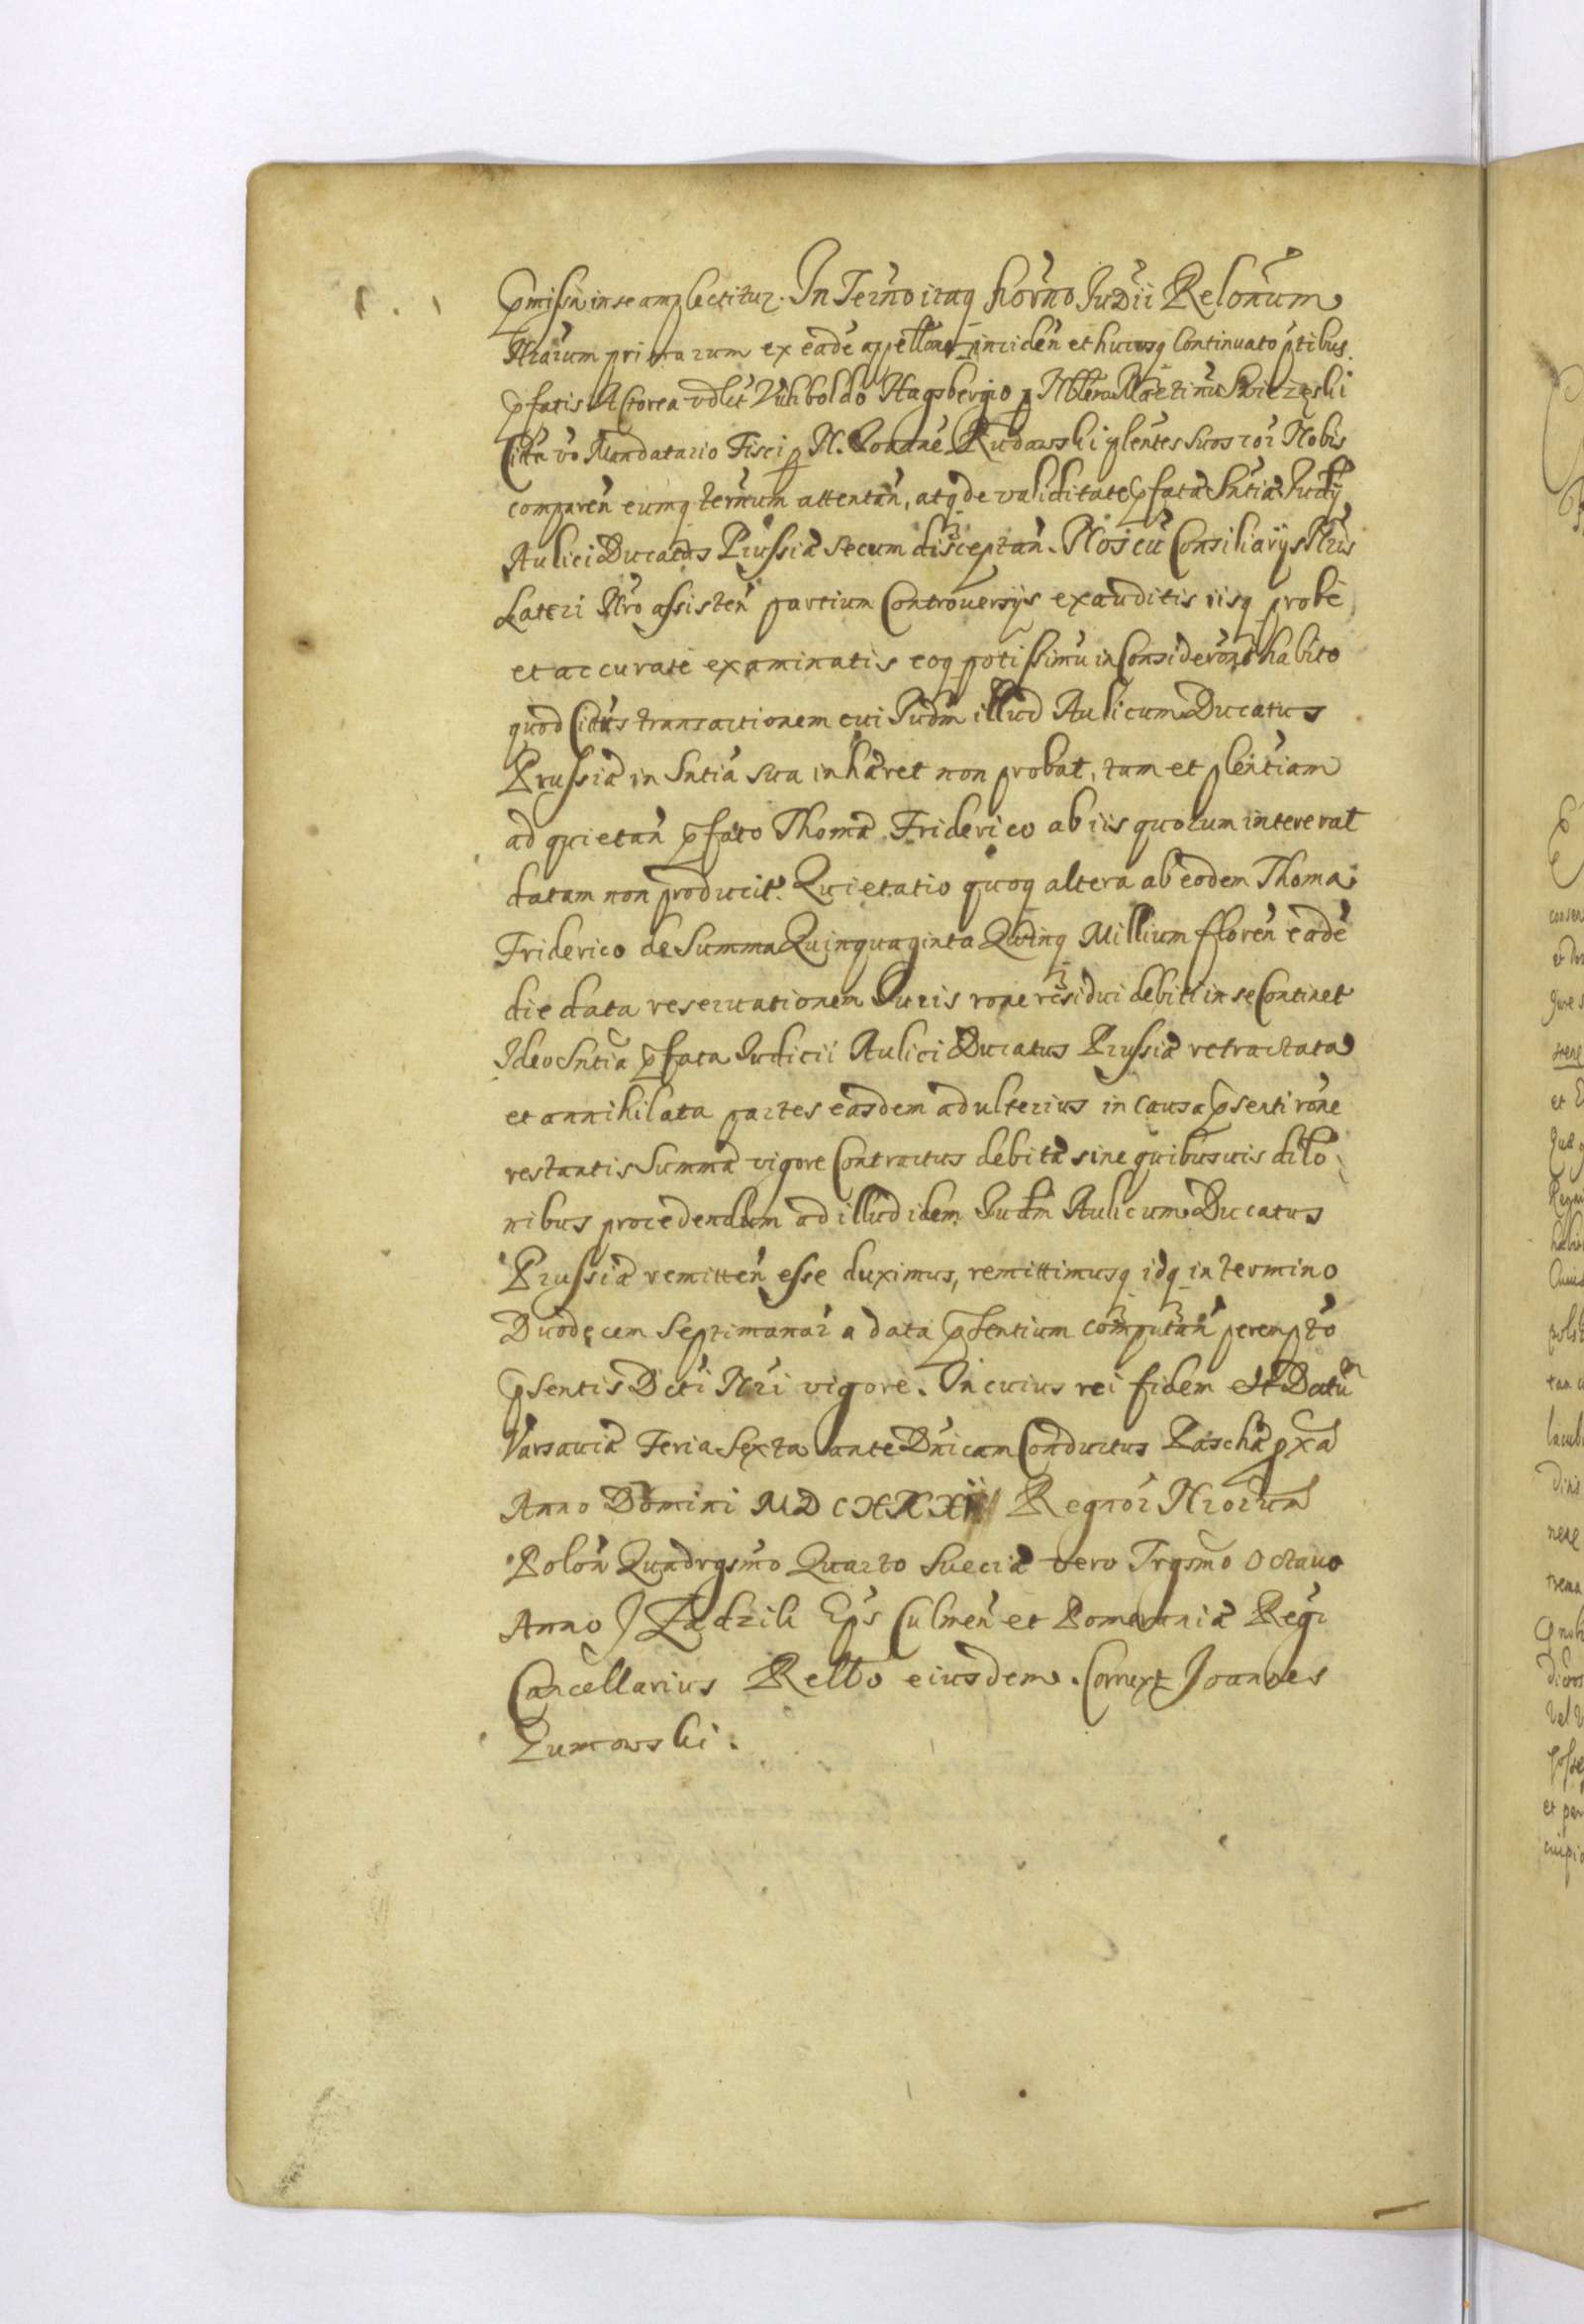 p̱missa in se amplectitur. In Terno itaq hôrno Judii Relonum
Nrarum primarum ex eade appellone inciden et hucusq Continuato ptibus
pfatis Actorea vdlct Vuiboldo Hagsbergio p Nblem Martinu
Citta vo Mandatario Fisci p N. Jonane Rudawski plentes suos coi Nobis
comparen eumq ternum attentan, atq de validitate pfatæ Sntiæ Judij
Aulici Ducatus Prussiæ secum disceptan. Nos cu Consiliarijs Nris
Lateri Nro assisten partium Controuersijs exauditis iisq probe
et accurate examinatis eoq potissimu in Consideronē habito
quod Cittus transactionem cui Judm illud Aulicum Ducatus
Prussiæ in Sntia sua inhæret non probat, tum et plentiam
ad quietan pfato Thomæ Friderico ab iis quorum intererat
datam non producit. Quietatio quoq altera ab eodem Thoma
Friderico de Summa Quinquaginta Quinq Millium floren eade
die data reseruationem Juris rone residui debiti in se Continet
Ideo Sntia pfata Judicii Aulici Ducatus Prussiæ retractata
et annihilata partes easdem ad ulterius in causa psenti rone
restantis Summæ vigore Contractus debitæ sine quibusuis dilo
nibus procedendum ad illud idem Judm Aulicum Ducatus
Prussiæ remitten esse duximus, remittimusq idq in termino
Duodecem Septimanar a data psentium computan perempto
psentis Dcti Nri vigore. In cuius rei fidem Et Datu
Varsauiæ Feria Sexta ante Dnicam Conductus Paschæ pxa
Anno Domini Regnor Nrorum
Polon Quadrgsmo Quarto Sueciæ vero Trgsmo Octauo
Anno J Zadzik Eps Culmen et Pomeraniæ Regi
Cancellarius Rello eiusdem. Correxit Joannes
Zumowski.